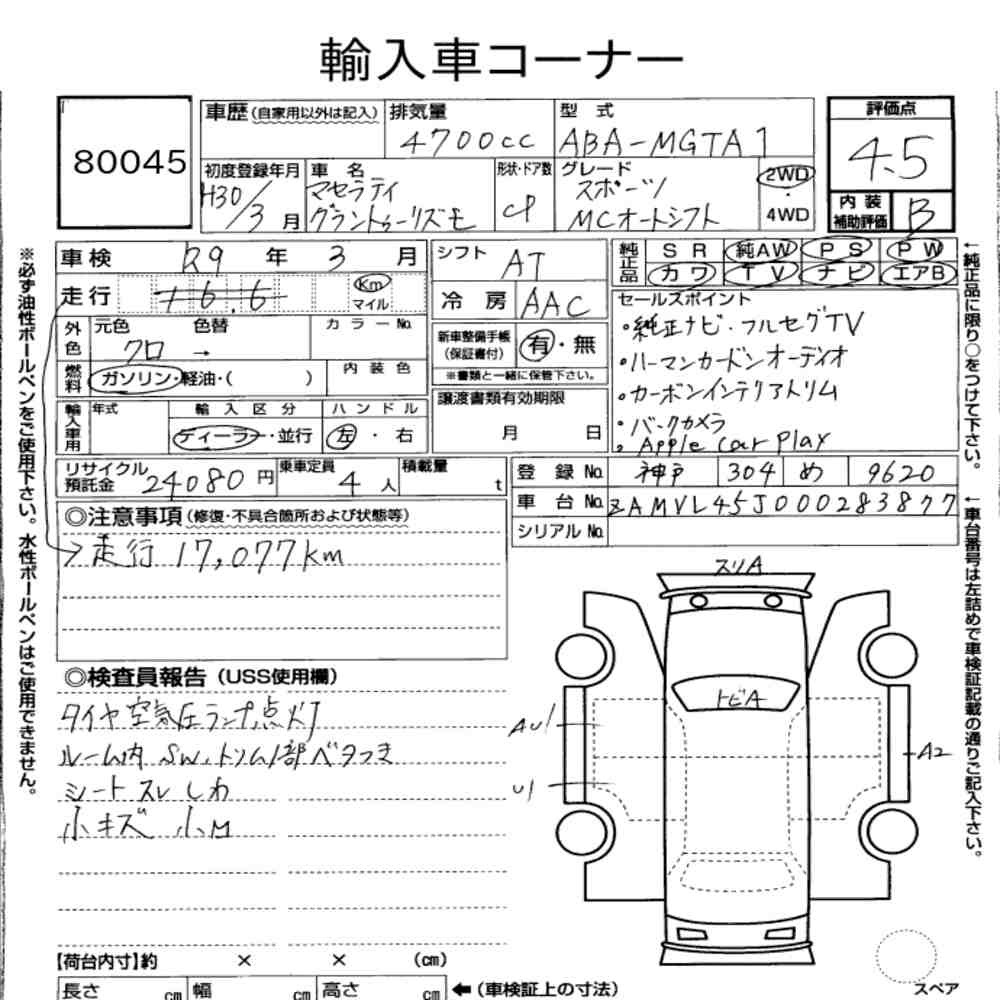 輸入車コーナー
80045
車歴(自家用以外は記入) 排気量 4700cc 型式 ABA-MGTA1
評価点 4.5
初度登録年月 H30/3月 車名 マセラティ グラントゥーリズモ
形状・ドア数 CP グレード スポーツ MCオートシフト 2WD・4WD
内装補助評価 B
車検 R9年 3月
シフト AT
純正品 SR 純AW PS PW
カワ TV ナビ エアB
走行 Km マイル
冷房 AAC
セールスポイント
・純正ナビ・フルセグTV
・ハーマンカードンオーディオ
・カーボンインテリアトリム
・バックカメラ
・Apple Car Play
外色 元色 クロ 色替 → カラーNo.
新車整備手帳(保証書付) 有・無
※書類と一緒に保管下さい。
燃料 ガソリン・軽油・( ) 内装色
譲渡書類有効期限 月 日
輸入車用 年式 輸入区分 ディーラー・並行 ハンドル 左・右
リサイクル預託金 24080円 乗車定員 4人 積載量 t
登録No. 神戸 304 め 9620
車台No. ZAMVL45J000283877
シリアルNo.
◎注意事項(修復・不具合箇所および状態等)
走行 17,077km
◎検査員報告(USS使用欄)
タイヤ空気圧ランプ点灯
ルーム内 SW、トリム1部ベタつき
シート スレ しわ
小キズ 小M
スリA
トビA
AU1
U1
A2
スペア
【荷台内寸】約 × × (cm)
長さ cm 幅 cm 高さ cm ←(車検証上の寸法)
※必ず油性ボールペンをご使用下さい。水性ボールペンはご使用できません。
←純正品に限り○をつけて下さい。
←車台番号は左詰めで車検証記載の通りご記入下さい。